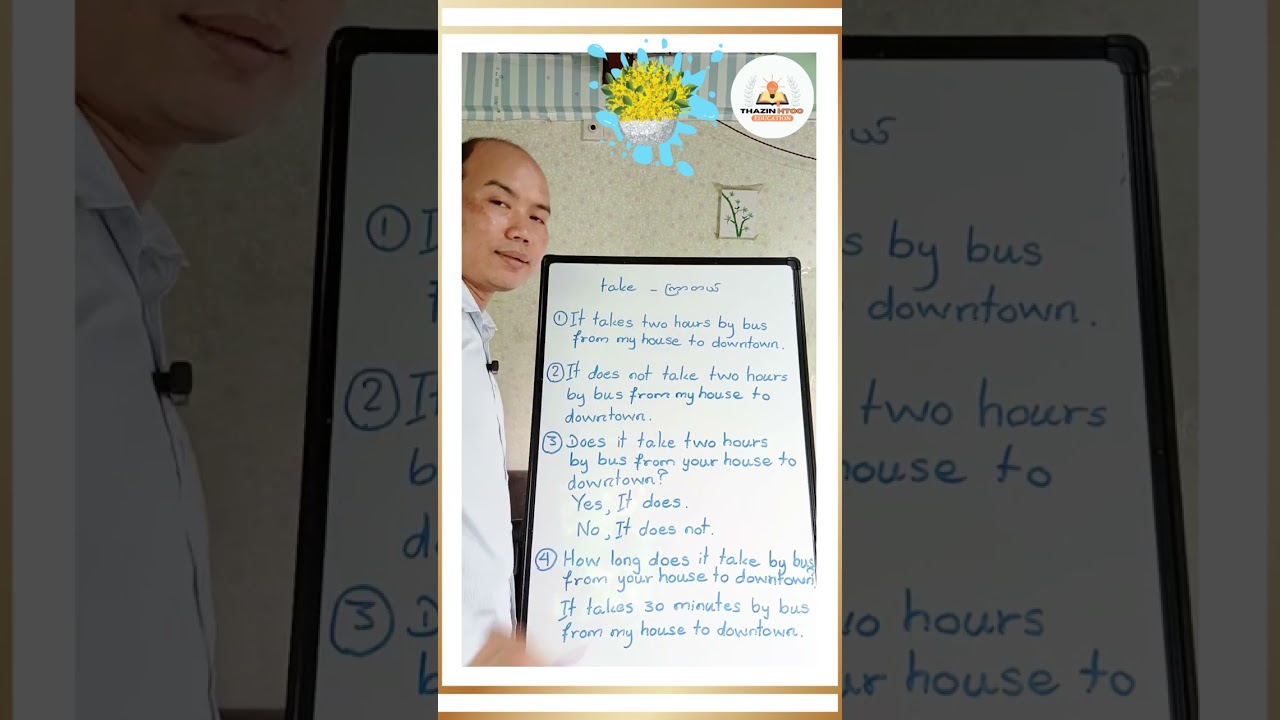 THAZIN HTOO
EDUCATION
take - ကြာတယ်
① It takes two hours by bus
from my house to downtown.
② It does not take two hours
by bus from my house to
downtown.
③ Does it take two hours
by bus from your house to
downtown?
Yes, It does.
No, It does not.
④ How long does it take by bus
from your house to downtown?
It takes 30 minutes by bus
from my house to downtown.